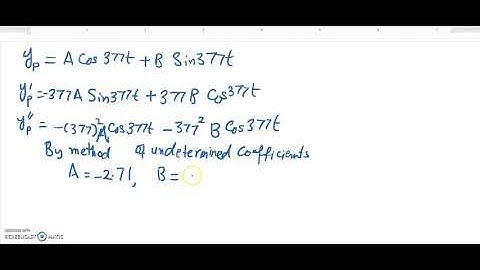 y_p = A Cos 377t + B Sin377t
y_p' = -377A Sin377t + 377B Cos377t
y_p'' = -(377)²A Cos377t - 377² B Cos377t
By method of undetermined coefficients
A = -2.71, B =
RECORDED WITH
SCREENCAST MATIC